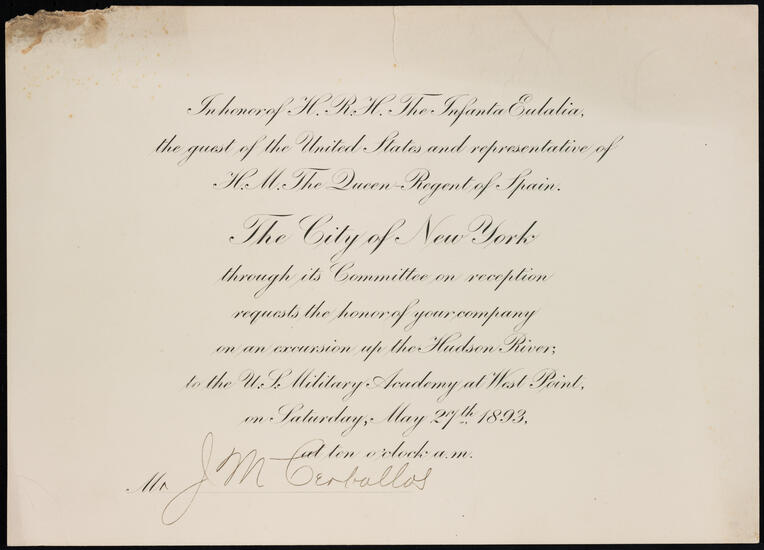 In honor of H. R. H. The Infanta Eulalia,
the guest of the United States and representative of
H. M. The Queen-Regent of Spain.
The City of New York
through its Committee on reception
requests the honor of your company
on an excursion up the Hudson River,
to the U. S. Military Academy at West Point,
on Saturday, May 27th 1893,
at ten o'clock a.m.
Mr. J M Cerballos